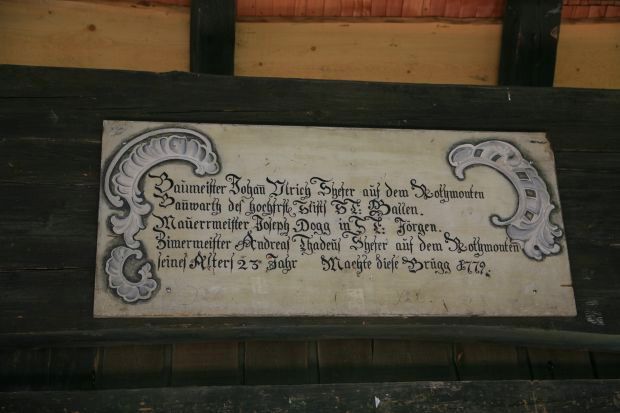 Baumeister Johan Ulrich Shefer auf dem Rothmonten
Bauwarth des hochfrst. Stifts St. Gallen.
Maurrmeister Joseph Dogg in St. Jörgen.
Zimermeister Andreas Thadeus Shefer auf dem Rothmonten
seines Alters 23 Jahr Machte diese Brügg 1779.